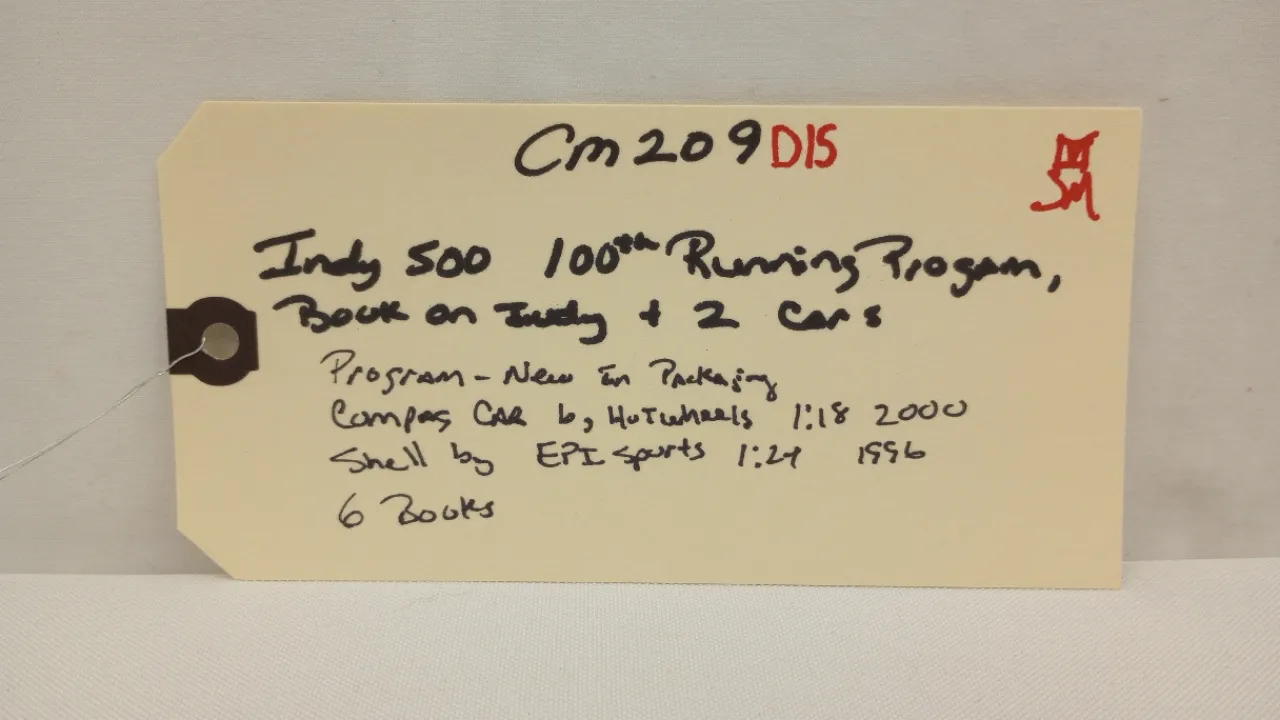 Cm 209 D1S
SM
Indy 500 100th Running Progam,
Book on Indy + 2 Cars
Program - New In Packaging
Compaq CAR by HotWheels 1:18 2000
Shell by EPI Sports 1:24 1996
6 Books